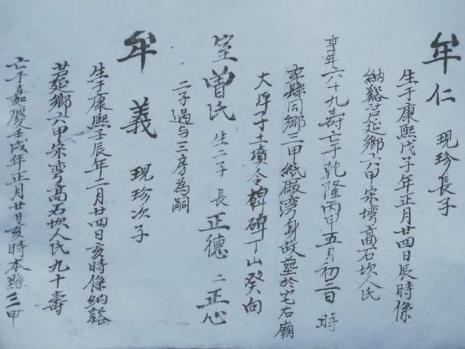 牟仁 現珍長子
生于康熙戊子年正月廿四日辰時係
納谿若莚鄉六甲宋塆高石坎人民
享年六十九壽亡于乾隆丙申五月初三日 時
本縣同鄉二甲紙廠湾身故塟於宅石廟
大坪子土墳合 碑丁山癸向
室曾氏 生二子 長 正德 二 正心
二子過与三房為嗣
牟義 現珍次子
生于康熙壬辰年二月廿四日亥時係納谿
莚鄉六甲宋塆高石坎人民九十壽
亡于嘉慶壬戌年正月廿日亥時本縣三甲